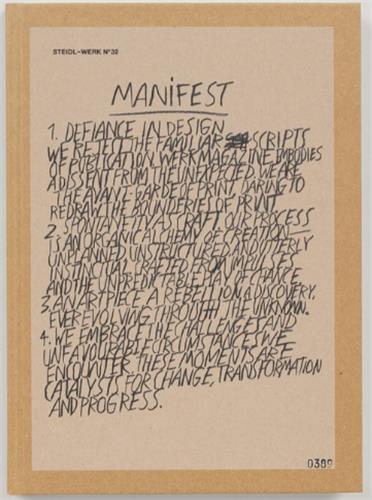 STEIDL-WERK Nº32
MANIFEST
1. DEFIANCE IN DESIGN
WE REJECT THE FAMILIAR SCRIPTS
OF PUBLICATION. WERK MAGAZINE EMBODIES
A DISSENT FROM THE UNEXPECTED. WE ARE
THE AVANT GARDE OF PRINT, DARING TO
REDRAW THE BOUNDERIES OF PRINT
2. SPONTANEITY AS CRAFT OUR PROCESS
IS AN ORGANIC ALCHEMY OF CREATION—
UNPLANNED, UNSTRUCTURED AND UTTERLY
INSTINCTUAL. CRAFTED FROM IMPULSES
AND THE UNPREDICTABLE PLAY OF CHANCE
3. AN ART PIECE A REBELLION A DISCOVERY.
EVER EVOLVING THROUGH THE UNKNOWN.
4. WE EMBRACE THE CHALLENGES AND
UNFAVOURABLE CIRCUMSTANCES WE
ENCOUNTER. THESE MOMENTS ARE
CATALYSTS FOR CHANGE, TRANSFORMATION
AND PROGRESS.
0389